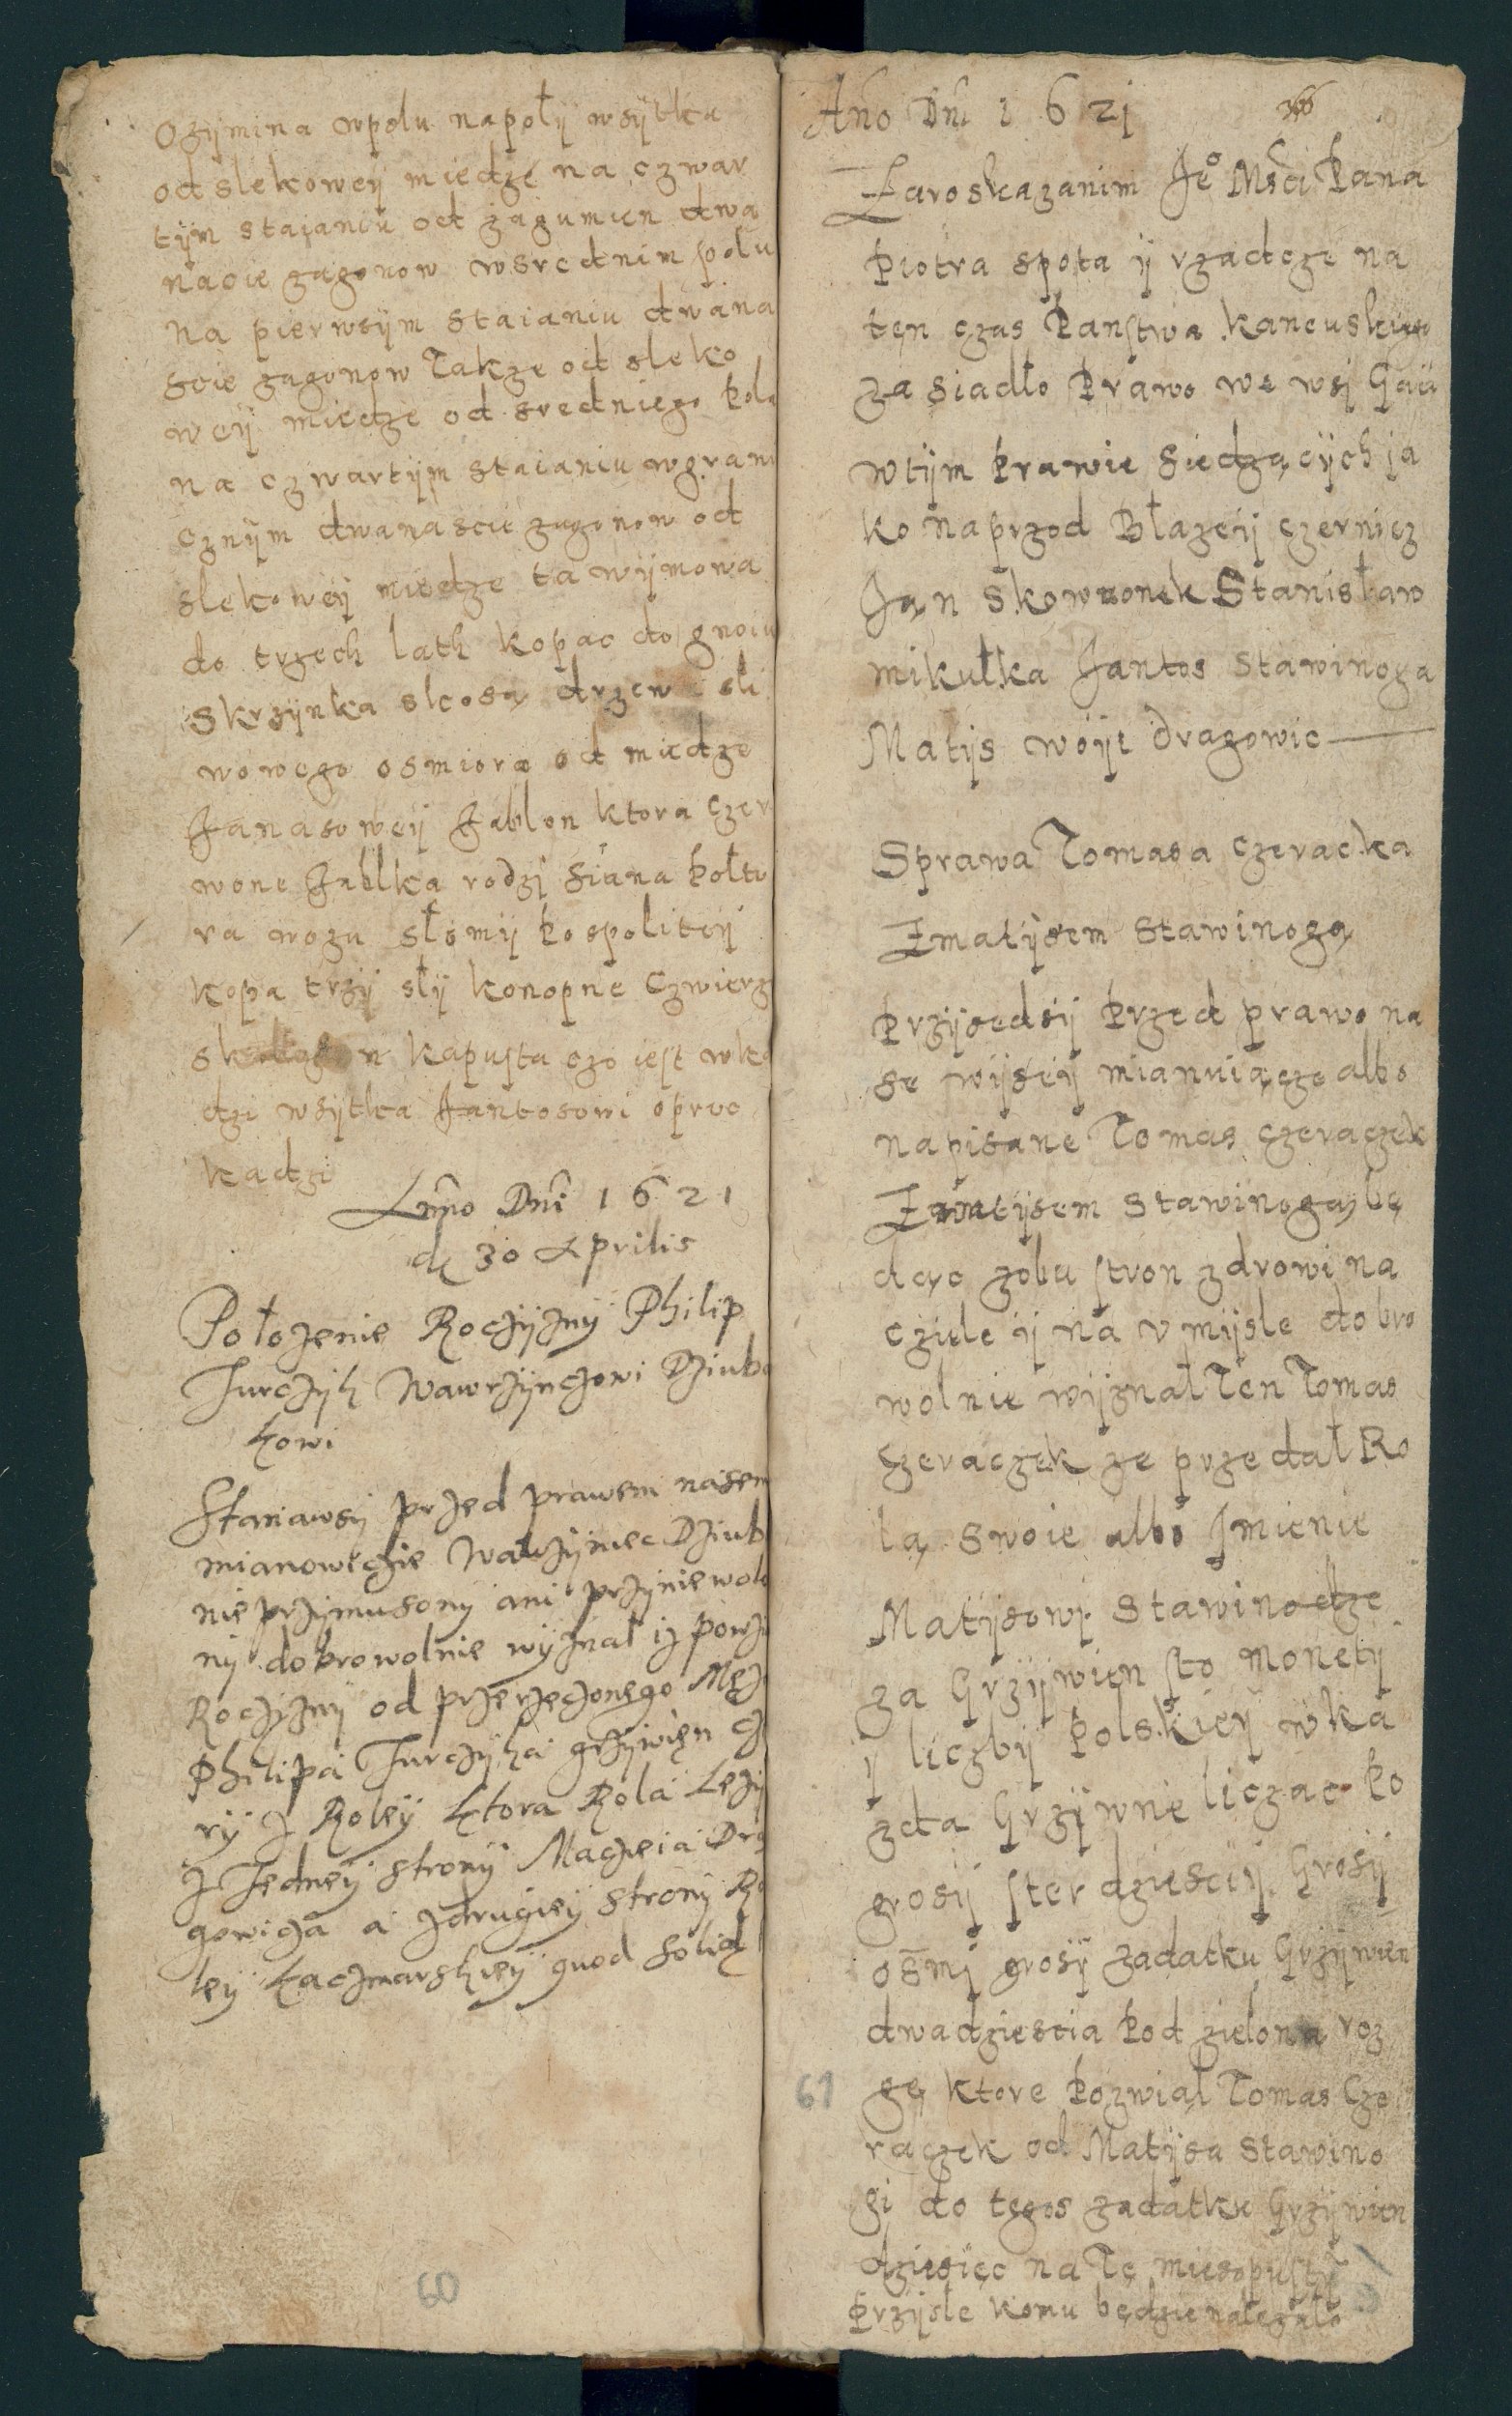 Ozymina wpolu napoły wsytka
od slekowey miedze na czwar
tym staianiu od zagumien dwa
nacie zagonow wsrednim polu
na pierwsym staianiu dwana
scie zagonow Takze od sleko
wey miedze od sredniego pola
na czwartym staianiu wgrani
cznym dwanascie zagonow od
slekowey miedze ta wymowa
do trzech lath kopac do gnoiu
skrzynka skosa drzew sli
wowego osmiora od miedze
Janasowey Jablon ktora czer
wone Jablka rodzi siana połto
ra wozu słomy pospolitey
kopa trzy sły konopne czwierz
kapusta czo iest wka
dzi wsytka Jantosowi oproc
kadzi
Anno Dni 1621
die 30 Aprilis
Połozenie Roczyzny Philip
Turczyk Wawrzynczowi Dziubo
kowi
Stanawsy przed prawem nasem
mianowiczie Wawrzyniec Dziub
nie przymusony ani przyniewolo
ny dobrowolnie wyznał iz powzi
Roczyzny od przerzeczonego Męz
Philipa Turczyka grzywien cz
ry z Roley ktora Rola Lezy
z Jedney strony Maczieia Dra
gowicza a zdrugiey strony Ro
ley kaczmarskiey quod solid
60
Ano Dni 1621
Zaroskazanim Jeo Msci Pana
Piotra spota y rzadcze na
ten czas Panstwa kancuskiego
zasiadło Prawo we wsi Gaci
wtym Prawie siedzących ja
ko naprzod Błazey czernicz
Jan skowronek Stanisław
mikułka Jantos stawinoga
Matys woyt dragowic
Sprawa Tomasa czeracka
Zmatysem stawinogą
Przysedsy Przed prawo na
se wysey mianuiącze albo
napisane Tomas czeraczek
Zmatysem stawinogą bę
dąc zobu stron zdrowi na
cziele y na vmysle dobro
wolnie wyznał Ten Tomas
czeraczek ze przedał Ro
lą swoie albo Jmienie
Matysowi stawinodze
za Grzywien sto monety
y liczby Polskiey wka
zda Grzywne liczac po
grosy sterdziesciy Grosy
osmi grosy zadatku Grzywien
dwadziescia Pod zielona roz
61 gę ktore Pozwiał Tomas Cze
raczek od Matysa stawino
gi do tegos zadatku Grzywien
dziesięc na Te miesopusty
Przysłe komu będzie nalezało